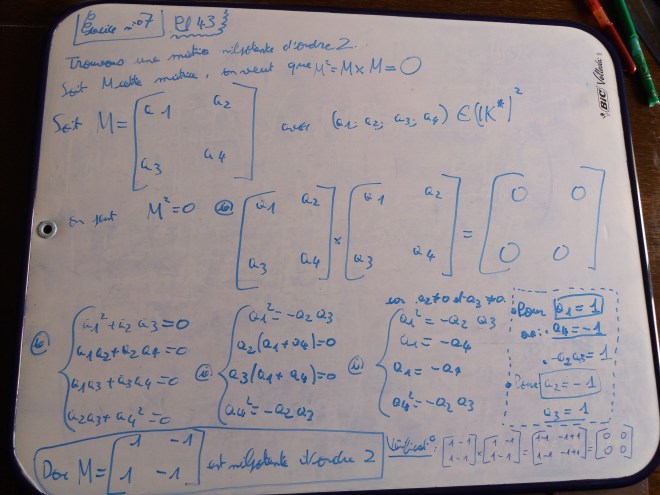 Exercice n°07 P 43
Trouvons une matrice nilpotente d'ordre 2.
Soit M cette matrice, on veut que M² = M × M = 0
Soit M = [a1 a2
a3 a4] avec (a1; a2; a3; a4) ∈ (IK*)²
on veut M² = 0 (⇔) [a1 a2 × [a1 a2 = [0 0
a3 a4] a3 a4] 0 0]
(⇔) { a1² + a2 a3 = 0
a1a2 + a2 a4 = 0
a1a3 + a3a4 = 0
a2a3 + a4² = 0
{ a1² = -a2 a3
a2(a1+a4)=0
a3(a1+a4)=0
a4² = -a2 a3
car a2≠0 et a3≠0.
{ a1² = -a2 a3
a1 = -a4
a1 = -a4
a4² = -a2 a3
Pour a1 = 1
a4 = -1
-a2a3 = 1
Pour a2 = -1
a3 = 1
Donc M = [1 -1
1 -1] est nilpotente d'ordre 2
Vérificat°: [1 -1 × [1 -1 = [1-1 -1+1 = [0 0
1 -1] 1 -1] 1-1 -1+1] 0 0]
BIC Velleda